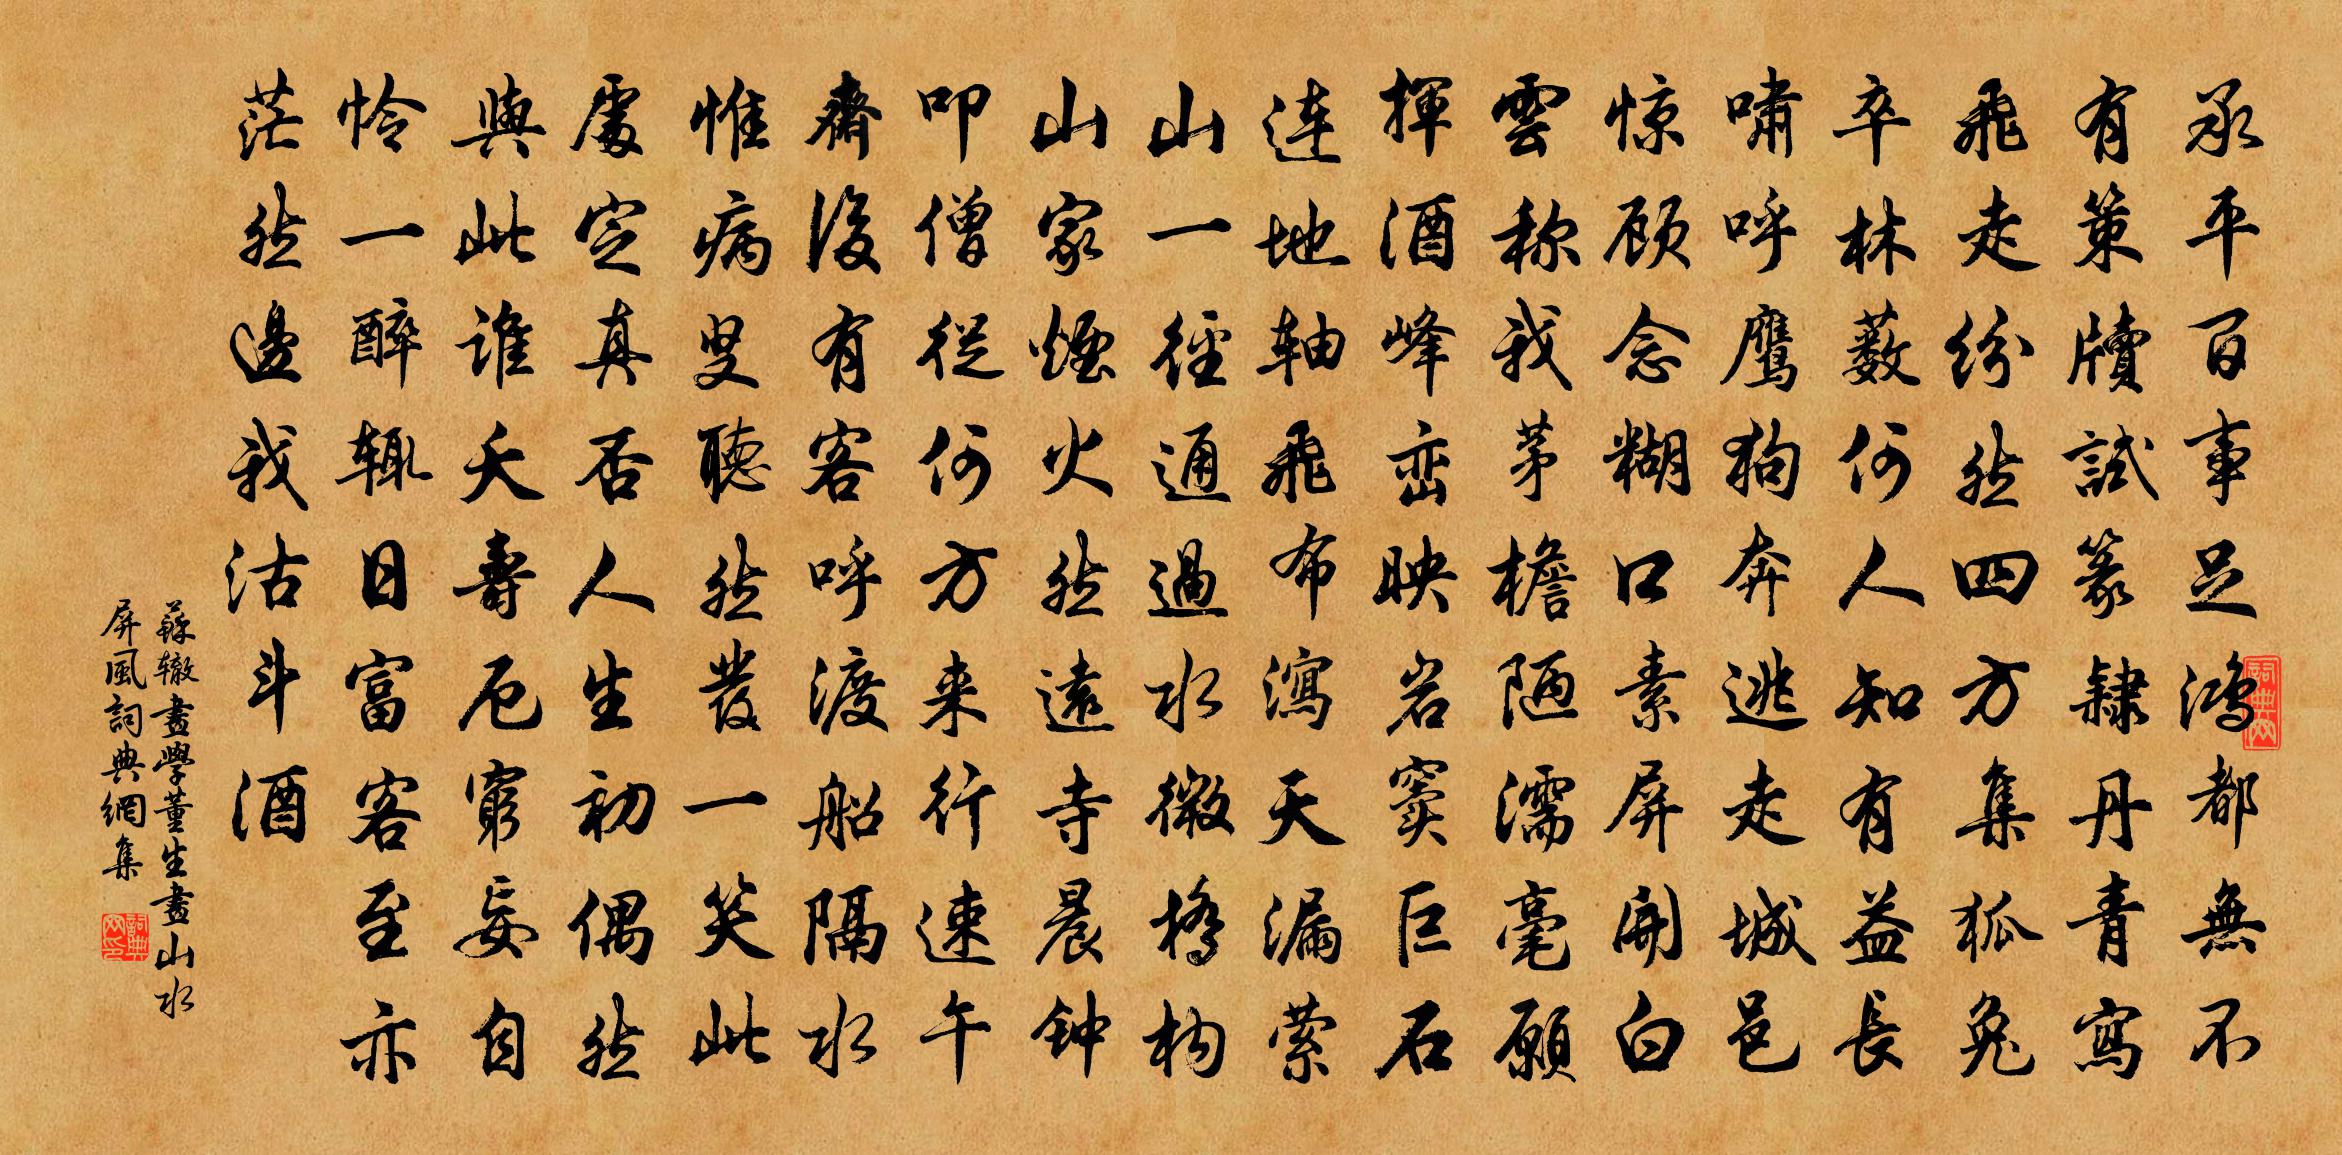 承平百事足鴻都無不
有策牘試篆隸丹青寫
飛走紛然四方集狐兔
卒林薮何人知有益長
嘯呼鷹狗奔逃走城邑
惊顾念糊口素屏開白
雲称我茅檐陋濡毫願
揮酒峰峦映岩窦巨石
连地轴飛布瀉天漏萦
山一徑通過水微橋构
山家煙火然遠寺晨钟
叩僧從何方来行速午
齋後有客呼渡船隔水
惟病叟聽然發一笑此
處定真否人生初偶然
與此谁夭壽厄窮妄自
怜一醉辄日富客至亦
茫然邊我沽斗酒
蘇辙畫學董生畫山水
屏風詞典網集
詞典网
詞典网